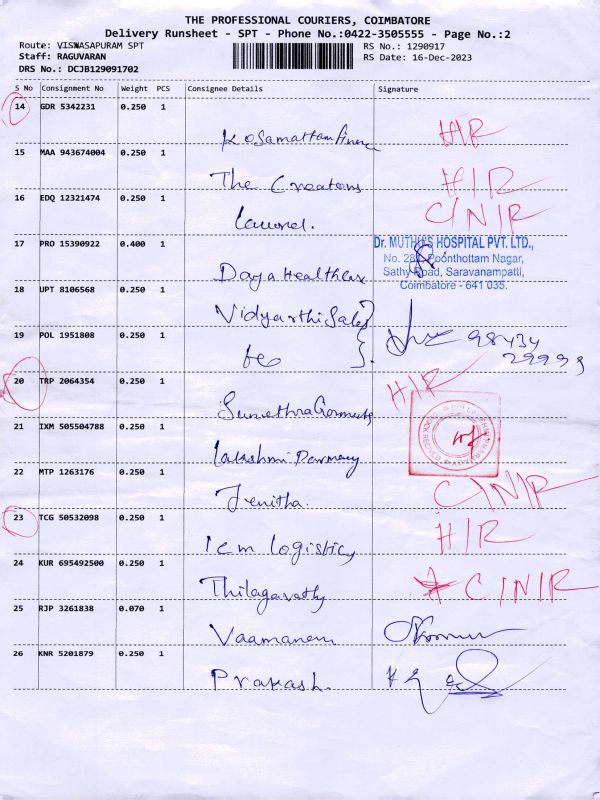 THE PROFESSIONAL COURIERS, COIMBATORE
Delivery Runsheet - SPT - Phone No.:0422-3505555 - Page No.:2
Route: VISWASAPURAM SPT
RS No.: 1290917
Staff: RAGUVARAN
RS Date: 16-Dec-2023
DRS No.: DCJB129091702
S No Consignment No Weight PCS Consignee Details Signature
14 GDR 5342231 0.250 1
Kosamattam finance H/R
15 MAA 943674004 0.250 1
The Creations H/R
16 EDQ 12321474 0.250 1
Laurel. C/N/R
17 PRO 15390922 0.400 1
Dr. MUTHU'S HOSPITAL PVT. LTD.,
No. Poonthottam Nagar,
Sathy Road, Saravanampatti,
Coimbatore - 641 035.
Daya Healthcare
18 UPT 8106568 0.250 1
Vidyarthi Sales
19 POL 1951808 0.250 1
98434
29999
20 TRP 2064354 0.250 1
Sumethra Garments H/R
21 IXM 505504788 0.250 1
Lakshmi Parmacy
22 MTP 1263176 0.250 1
Jenitha. C/N/R
23 TCG 50532098 0.250 1
ICM logistics H/R
24 KUR 695492500 0.250 1
Thilagavathy C/N/R
25 RJP 3261838 0.070 1
Vaamanam
26 KNR 5201879 0.250 1
Prakash.